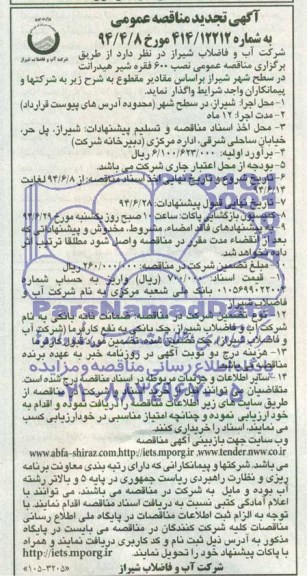 آگهی تجدید مناقصه عمومی
به شماره ۴۱۴/۱۲۲۱۲ مورخ ۹۴/۴/۸
شرکت آب و فاضلاب شیراز در نظر دارد از طریق
برگزاری مناقصه عمومی نصب ۶۰۰ فقره شیر هیدرانت
در سطح شهر شیراز براساس مقادیر مقطوع به شرح زیر به شرکتها و
پیمانکاران واجد شرایط واگذار نماید.
۱- محل اجرا: شیراز، در سطح شهر (محدوده آدرس های پیوست قرارداد)
۲- مدت اجرا: ۱۲ ماه
۳- محل اخذ اسناد مناقصه و تسلیم پیشنهادات: شیراز، پل حر،
خیابان ساحلی شرقی، اداره مرکزی (دبیرخانه شرکت)
۴- برآورد اولیه: ۶/۱۰۰/۶۲۳/۰۰۰ ریال
۵- بودجه از محل اعتبار جاری شرکت می باشد.
۶- تاریخ شروع و تاریخ نهایی اخذ اسناد مناقصه: از ۹۴/۶/۸ لغایت
۹۴/۶/۱۳
۷- تاریخ نهایی قبول پیشنهادات: ۹۴/۶/۲۸
۸- کمیسیون بازگشایی پاکات: ساعت ۱۰ صبح روز یکشنبه مورخ ۹۴/۶/۲۹
۹- به پیشنهادهای فاقد امضاء، مشروط، مخدوش و پیشنهاداتی که
بعد از انقضاء مدت مقرر در مناقصه واصل شود مطلقا ترتیب اثر
داده نخواهد شد.
۱۰- مبلغ تضمین شرکت در مناقصه: ۲۶۰/۰۰۰/۰۰۰ ریال
۱۱- قیمت اسناد (ریال) واریز به حساب شماره
بانک ملی شعبه مرکزی به نام شرکت آب و
فاضلاب شیراز
۱۲- نوع تضمین شرکت در مناقصه: ضمانت نامه بانکی به نام
شرکت آب و فاضلاب شیراز، چک بانکی به نفع کارفرما (شرکت آب
و فاضلاب شیراز)
۱۳- هزینه درج دو نوبت آگهی در روزنامه خبر به عهده برنده
مناقصه می باشد.
۱۴- سایر اطلاعات و جزئیات مربوطه در اسناد مناقصه درج شده است.
طریق سایت های زیر اطلاعات مناقصه را دریافت نموده و اقدام به
خودارزیابی نموده و چنانچه امتیاز مناسبی در خودارزیابی کسب
می نمایند، اسناد را خریداری کنند.
وب سایت جهت بازبینی آگهی مناقصه
www.abfa-shiraz.com,http//iets.mporg.ir ,www.tender.nww.co.ir
می باشد. شرکتها و پیمانکارانی که دارای رتبه بندی معاونت برنامه
ریزی و نظارت راهبردی ریاست جمهوری در پایه ۵ و بالاتر رشته
آب بوده و مایل به شرکت در مناقصه می باشند، می توانند با
اعلام آمادگی کتبی نسبت به دریافت اسناد مناقصه اقدام نمایند. با
توجه به الزام ثبت اطلاعات مناقصات در پایگاه ملی اطلاع رسانی
مناقصات کلیه شرکت کنندگان در مناقصه می بایست در پایگاه
مذکور به آدرس ذیل ثبت نام و کد کاربری دریافت نمایند و همراه
با پاکات پیشنهاد خود را تحویل نمایند. http://iets.mporg.ir
«۱۰۵-۳۲۰۵» شرکت آب و فاضلاب شیراز
ParsNamadData
۰۲۱-۸۸۳۴۹۶۷۰-۵